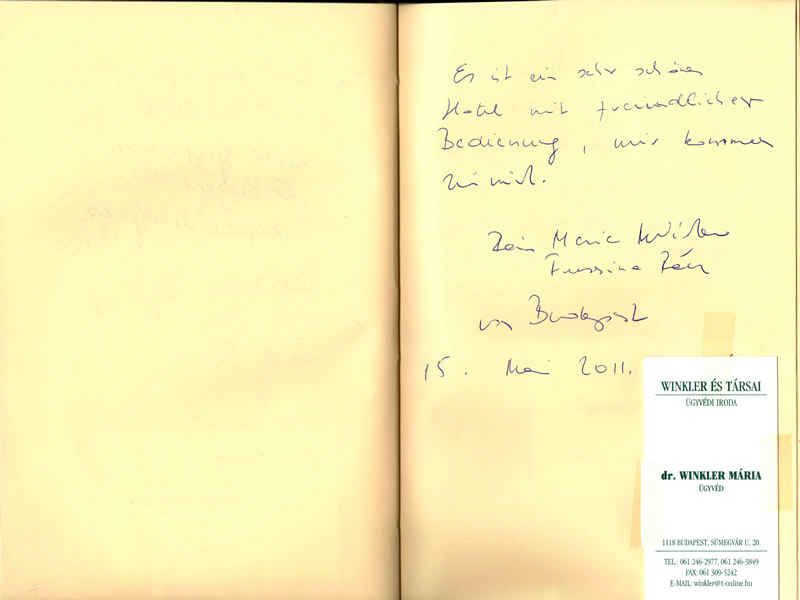 Es ist ein sehr schönes
Hotel mit freundlicher
Bedienung, wir kommen
Maria
von Budapest
15. Mai 2011.
WINKLER ÉS TÁRSAI
ÜGYVÉDI IRODA
dr. WINKLER MÁRIA
ÜGYVÉD
1118 BUDAPEST, SÜMEGVÁR U. 20.
TEL.: 061 246-2977, 061 246-3849
FAX: 061 309-5242
E-MAIL: winkler@t-online.hu